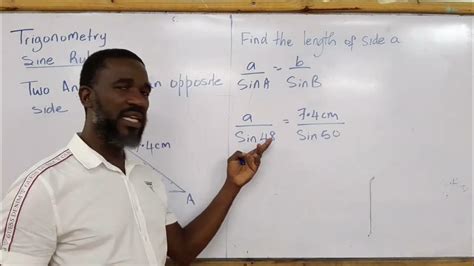 Trigonometry
Sine Rul
Two An an opposite
side
.4cm
A
Find the length of side a
a/SinA = b/SinB
a/Sin48 = 7.4cm/Sin50